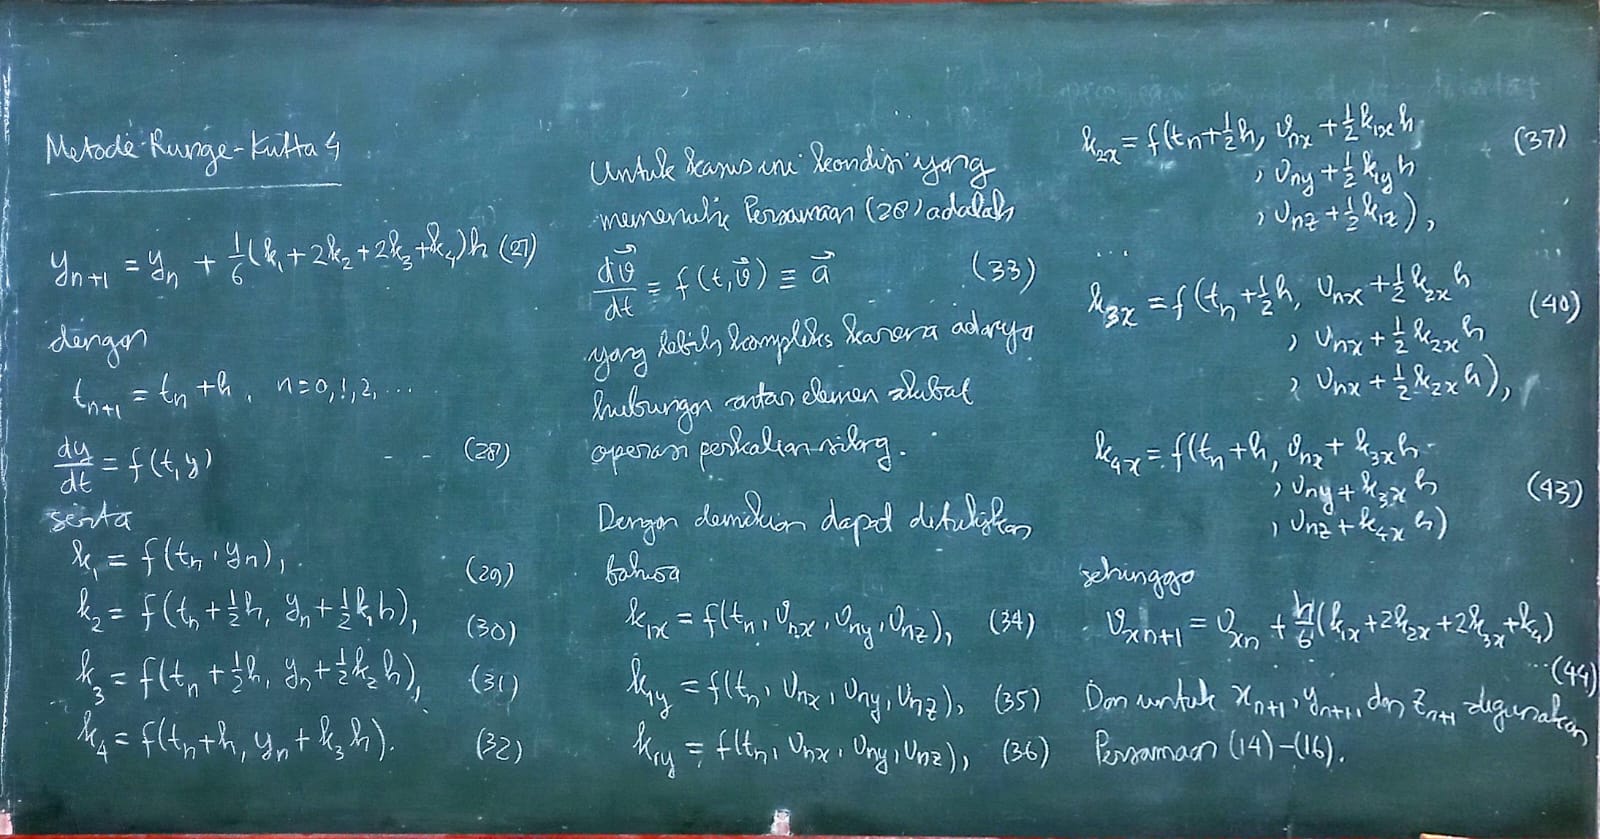 Metode Runge-Kutta 4
y_{n+1} = y_n + \frac{1}{6}(k_1 + 2k_2 + 2k_3 + k_4)h (27)
dengan
t_{n+1} = t_n + h, n = 0, 1, 2, ...
\frac{dy}{dt} = f(t, y) - - (28)
serta
k_1 = f(t_n, y_n), (29)
k_2 = f(t_n + \frac{1}{2}h, y_n + \frac{1}{2}k_1h), (30)
k_3 = f(t_n + \frac{1}{2}h, y_n + \frac{1}{2}k_2h), (31)
k_4 = f(t_n + h, y_n + k_3h). (32)
Untuk kasus ini kondisi yang
memenuhi Persamaan (28) adalah
\frac{d\vec{v}}{dt} = f(t, \vec{v}) ≡ \vec{a} (33)
yang lebih kompleks karena adanya
hubungan antar elemen akibat
operasi perkalian silang.
Dengan demikian dapat dituliskan
bahwa
k_{1x} = f(t_n, v_{nx}, v_{ny}, v_{nz}), (34)
k_{1y} = f(t_n, v_{nx}, v_{ny}, v_{nz}), (35)
k_{1y} = f(t_n, v_{nx}, v_{ny}, v_{nz}), (36)
k_{2x} = f(t_n + \frac{1}{2}h, v_{nx} + \frac{1}{2}k_{1x}h (37)
, v_{ny} + \frac{1}{2}k_{1y}h
, v_{nz} + \frac{1}{2}k_{1z}),
...
k_{3x} = f(t_n + \frac{1}{2}h, v_{nx} + \frac{1}{2}k_{2x}h (40)
, v_{nx} + \frac{1}{2}k_{2x}h
, v_{nx} + \frac{1}{2}k_{2x}h),
k_{4x} = f(t_n + h, v_{nx} + k_{3x}h
, v_{ny} + k_{3x}h (43)
, v_{nz} + k_{4x}h)
sehingga
v_{xn+1} = v_{xn} + \frac{h}{6}(k_{1x} + 2k_{2x} + 2k_{3x} + k_4)
...(44)
Dan untuk x_{n+1}, y_{n+1}, dan z_{n+1} digunakan
Persamaan (14)-(16).